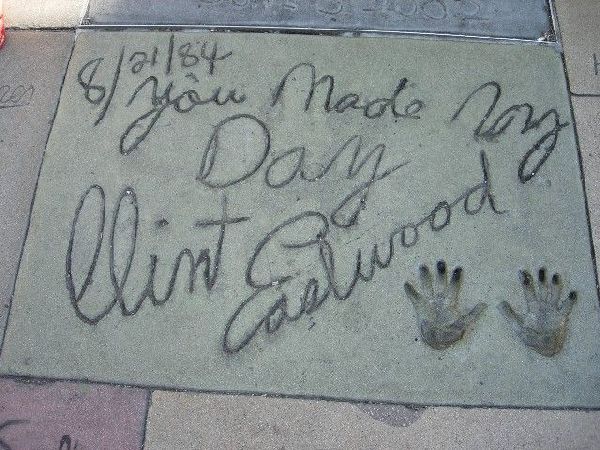 8/21/84
You Made My
Day
Clint Eastwood